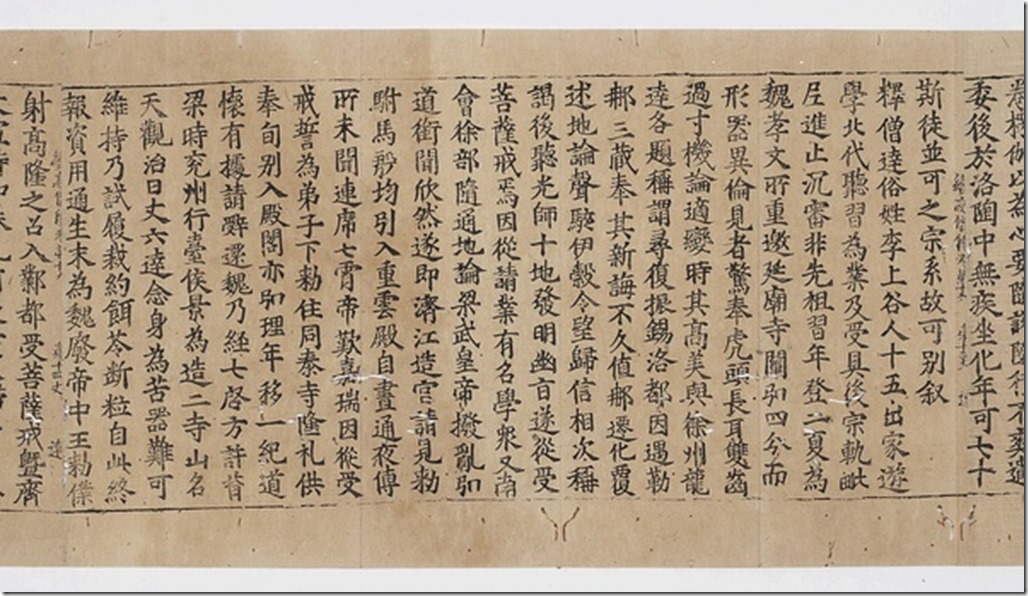 以為心要
委後於洛陶中無疾坐化年可七十
斯徒並可之宗系故可别叙
釋僧達俗姓李上谷人十五出家遊
學北代聽習為業及受具後宗軌毗
尼進止沉審非先祖習年登二夏為
魏孝文所重邀延廟寺闡弘四分而
形器異倫見者驚奉虎頭長耳雙齒
過寸機論適變時其高美與徐州龍
達各題稱謂尋復振錫洛都因遇勒
那三藏奉其新誨不久值那遷化覆
述地論聲駭伊穀令望歸信相次稱
謁後聽光師十地發明幽旨遂從受
菩薩戒焉因從請業有名學衆又南
會徐部隨通地論梁武皇帝撥亂弘
道銜聞欣然遂即濟江造宮請見勅
駙馬殷均引入重雲殿自晝通夜傳
所未聞連席七霄帝歎嘉瑞因從受
戒誓為弟子下勅住同泰寺隆礼供
奉旬别入殿閣亦弘理年移一紀道
懷有據請辭還魏乃経七啓方許昔
梁時兖州行臺侯景為造二寺山名
天觀治曰丈六達念身為苦器難可
維持乃試履裁約餌苓断粒自此終
報資用通生末為魏廢帝中王勅僕
射高隆之召入鄴都受菩薩戒曁齊